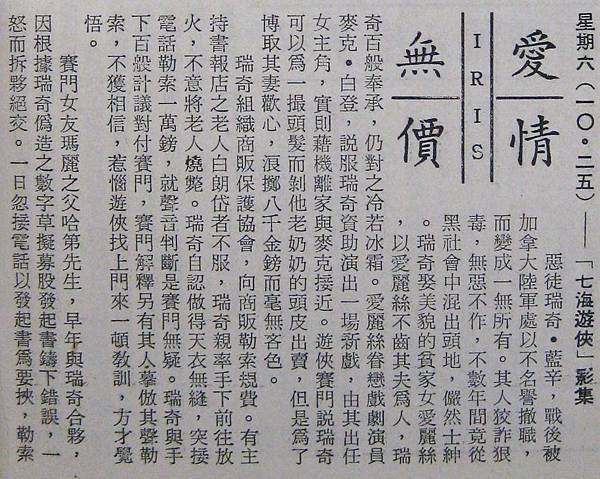 星期六(一〇•二五)——「七海遊俠」影集
愛情
IRIS
無價
惡徒瑞奇•藍辛,戰後被
加拿大陸軍處以不名譽撤職,
而變成一無所有。其人狡詐狠
毒,無惡不作,不數年間竟從
黑社會中混出頭地,儼然士紳
。瑞奇娶美貌的貧家女愛麗絲
,以愛麗絲不齒其夫為人,瑞
奇百般奉承,仍對之冷若冰霜。愛麗絲眷戀戲劇演員
麥克•白登,說服瑞奇資助演出一場新戲,由其出任
女主角,實則藉機離家與麥克接近。遊俠賽門說瑞奇
可以為一撮頭髮而剝他老奶奶的頭皮出賣,但是為了
博取其妻歡心,浪擲八千金鎊而毫無吝色。
瑞奇組織商販保護協會,向商販勒索規費。有主
持書報店之老人白朗岱者不服,瑞奇親率手下前往放
火,不意將老人燒斃。瑞奇自認做得天衣無縫,突接
電話勒索一萬鎊,就聲音判斷是賽門無疑。瑞奇與手
下百般計議對付賽門,賽門解釋另有其人摹倣其聲勒
索,不獲相信,惹惱遊俠找上門來一頓教訓,方才覺
悟。
賽門女友瑪麗之父哈第先生,早年與瑞奇合夥,
因根據瑞奇偽造之數字草擬募股發起書鑄下錯誤,一
怒而拆夥絕交。一日忽接電話以發起書為要挾,勒索